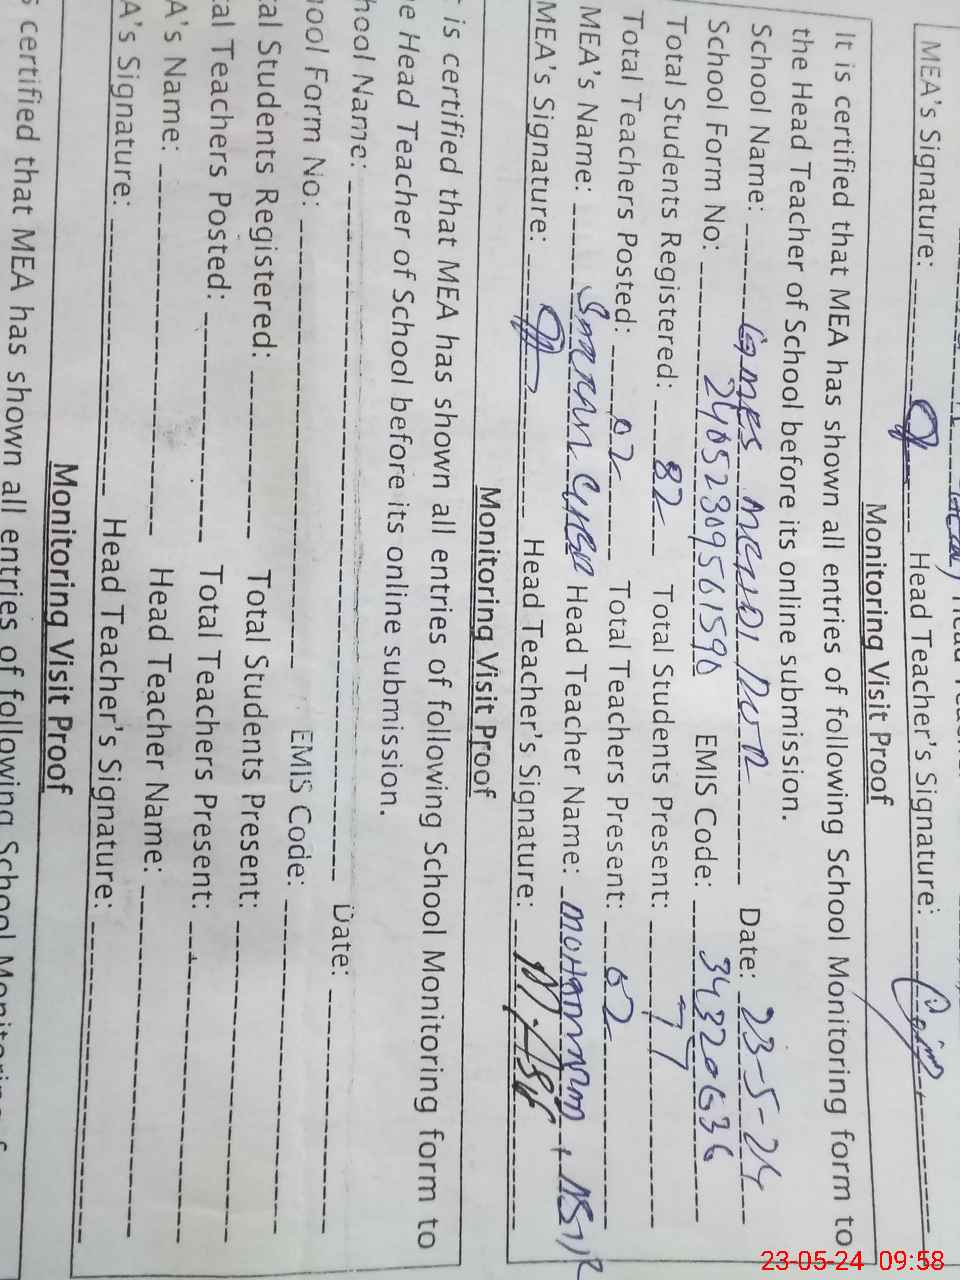 MEA's Signature: Head Teacher's Signature:
Monitoring Visit Proof
It is certified that MEA has shown all entries of following School Monitoring form to
the Head Teacher of School before its online submission.
School Name: GMPS Date: 23-5-24
School Form No: 24052309561590 EMIS Code: 34320636
Total Students Registered: 82 Total Students Present: 77
Total Teachers Posted: 02 Total Teachers Present: 02
MEA's Name: Head Teacher Name:
MEA's Signature: Head Teacher's Signature:
Monitoring Visit Proof
is certified that MEA has shown all entries of following School Monitoring form to
e Head Teacher of School before its online submission.
hool Name: Date:
ool Form No: EMIS Code:
al Students Registered: Total Students Present:
al Teachers Posted: Total Teachers Present:
A's Name: Head Teacher Name:
A's Signature: Head Teacher's Signature:
Monitoring Visit Proof
s certified that MEA has shown all entries of following School
23-05-24 09:58